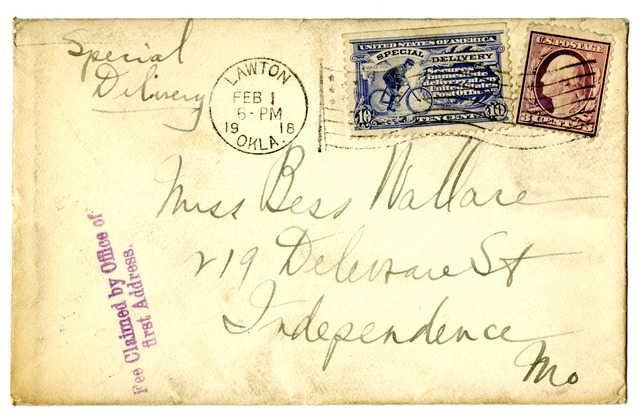 Special
Delivery
LAWTON
FEB 1
6-PM
1918
OKLA.
UNITED STATES OF AMERICA
SPECIAL DELIVERY
Secures
immediate
delivery at any
United States
Post Office
10 TEN CENTS 10
U.S. POSTAGE
3 CENTS 3
Miss Bess Wallace
219 Deleware St
Independence
Mo
Fee Claimed by Office of
first Address.